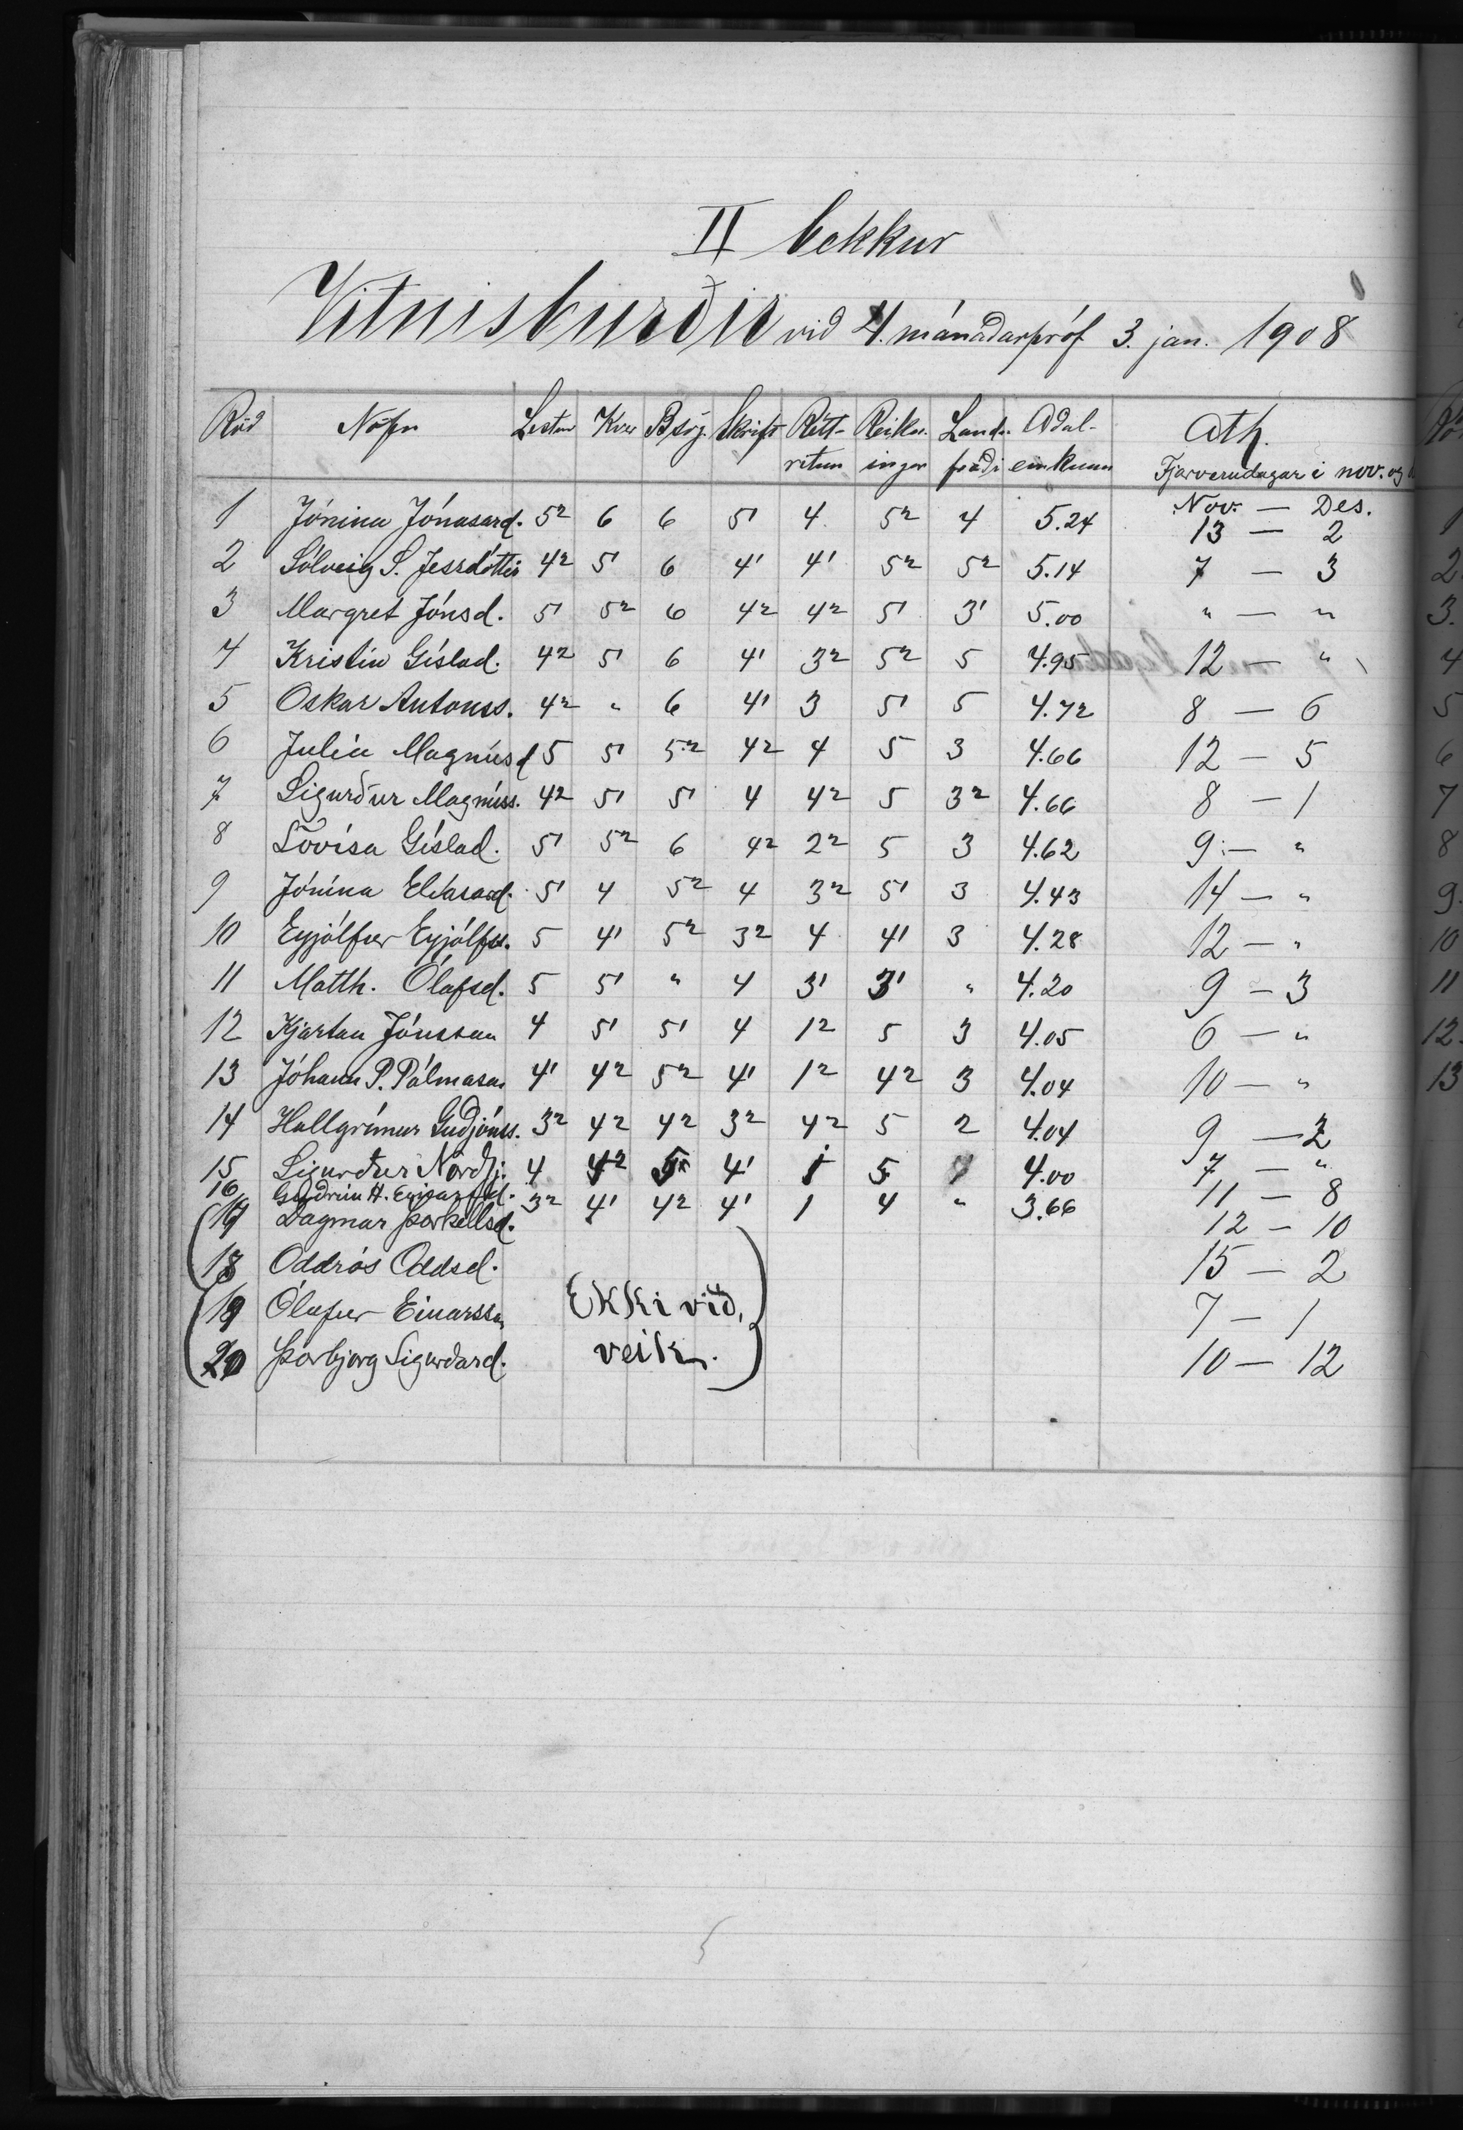 II bekkur
Vitnisburðir við 4. mánaðarpróf 3. jan. 1908
Röð Nöfn Lestur Kver B.sög. Skrift Rétt- Reikn. Land. Aðal- Ath.
ritun ingar fræði einkunn Fjarverudagar í nov. og
Nov. — Des.
1 Jónína Jónasard. 5² 6 6 5¹ 4 5² 4 5.24 13 — 2
2 Sólveig S. Jessdóttir 4² 5¹ 6 4¹ 4¹ 5² 5² 5.14 7 — 3
3 Margret Jónsd. 5¹ 5² 6 4² 4² 5¹ 3¹ 5.00 " — "
4 Kristín Gíslad. 4² 5¹ 6 4¹ 3² 5² 5 4.95 12 — "
5 Oskar Antonss. 4² " 6 4¹ 3 5¹ 5 4.72 8 — 6
6 Julia Magnúsd 5 5¹ 5² 4² 4 5 3 4.66 12 — 5
7 Sigurður Magnúss. 4² 5¹ 5¹ 4 4² 5 3² 4.66 8 — 1
8 Lovísa Gíslad. 5¹ 5² 6 4² 2² 5 3 4.62 9 — "
9 Jónína Elíasard. 5¹ 4 5² 4 3² 5¹ 3 4.43 14 — "
10 Eyjólfur Eyjólfss. 5 4¹ 5² 3² 4 4¹ 3 4.28 12 — "
11 Matth. Ólafsd. 5 5¹ " 4 3¹ 3¹ " 4.20 9 — 3
12 Kjartan Jónsson 4 5¹ 5¹ 4 1² 5 3 4.05 6 — "
13 Jóhann P. Pálmason 4¹ 4² 5² 4¹ 1² 4² 3 4.04 10 — "
14 Hallgrímur Guðjónss. 3² 4² 4² 3² 4² 5 2 4.04 9 — 2
15 Sigurður Norðfj. 4 4² 5² 4¹ 1 5 4.00 7 — "
16 Guðrún H. 3² 4¹ 4² 4¹ 1 4 " 3.66 11 — 8
17 Dagmar Þorkellsd. 12 — 10
18 Oddrós Oddsd. 15 — 2
19 Ólafur Einarsson Ekki við, 7 — 1
20 Þorbjorg Sigurðard. veik. 10 — 12